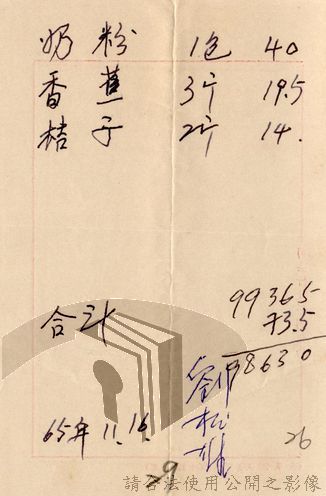 奶粉 1包 40
香蕉 3斤 19.5
桔子 2斤 14.
合计 73.5
99365
98630
65年11.16.
26
29
請合法使用公開之影像